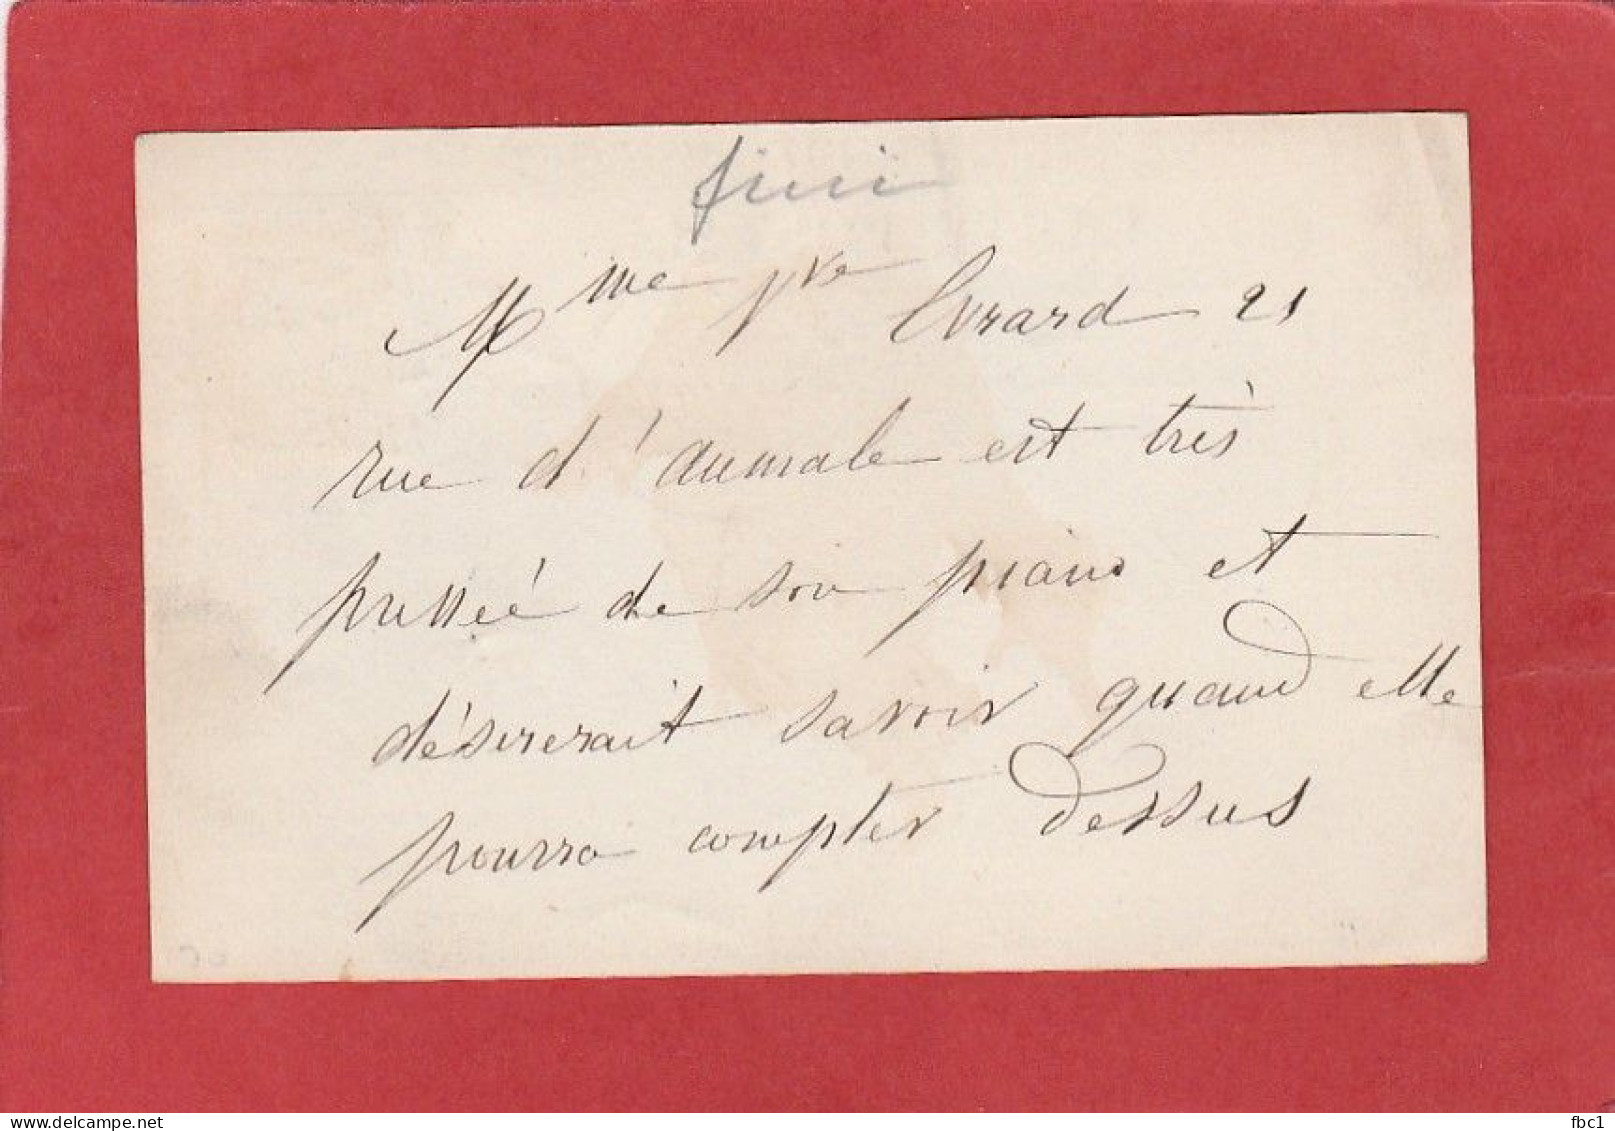 fini
Mme Vve Evrard 21
rue d'aumale est très
pressée de son piano et
désirerait savoir quand elle
pourra compter dessus
www.delcampe.net
fbc1